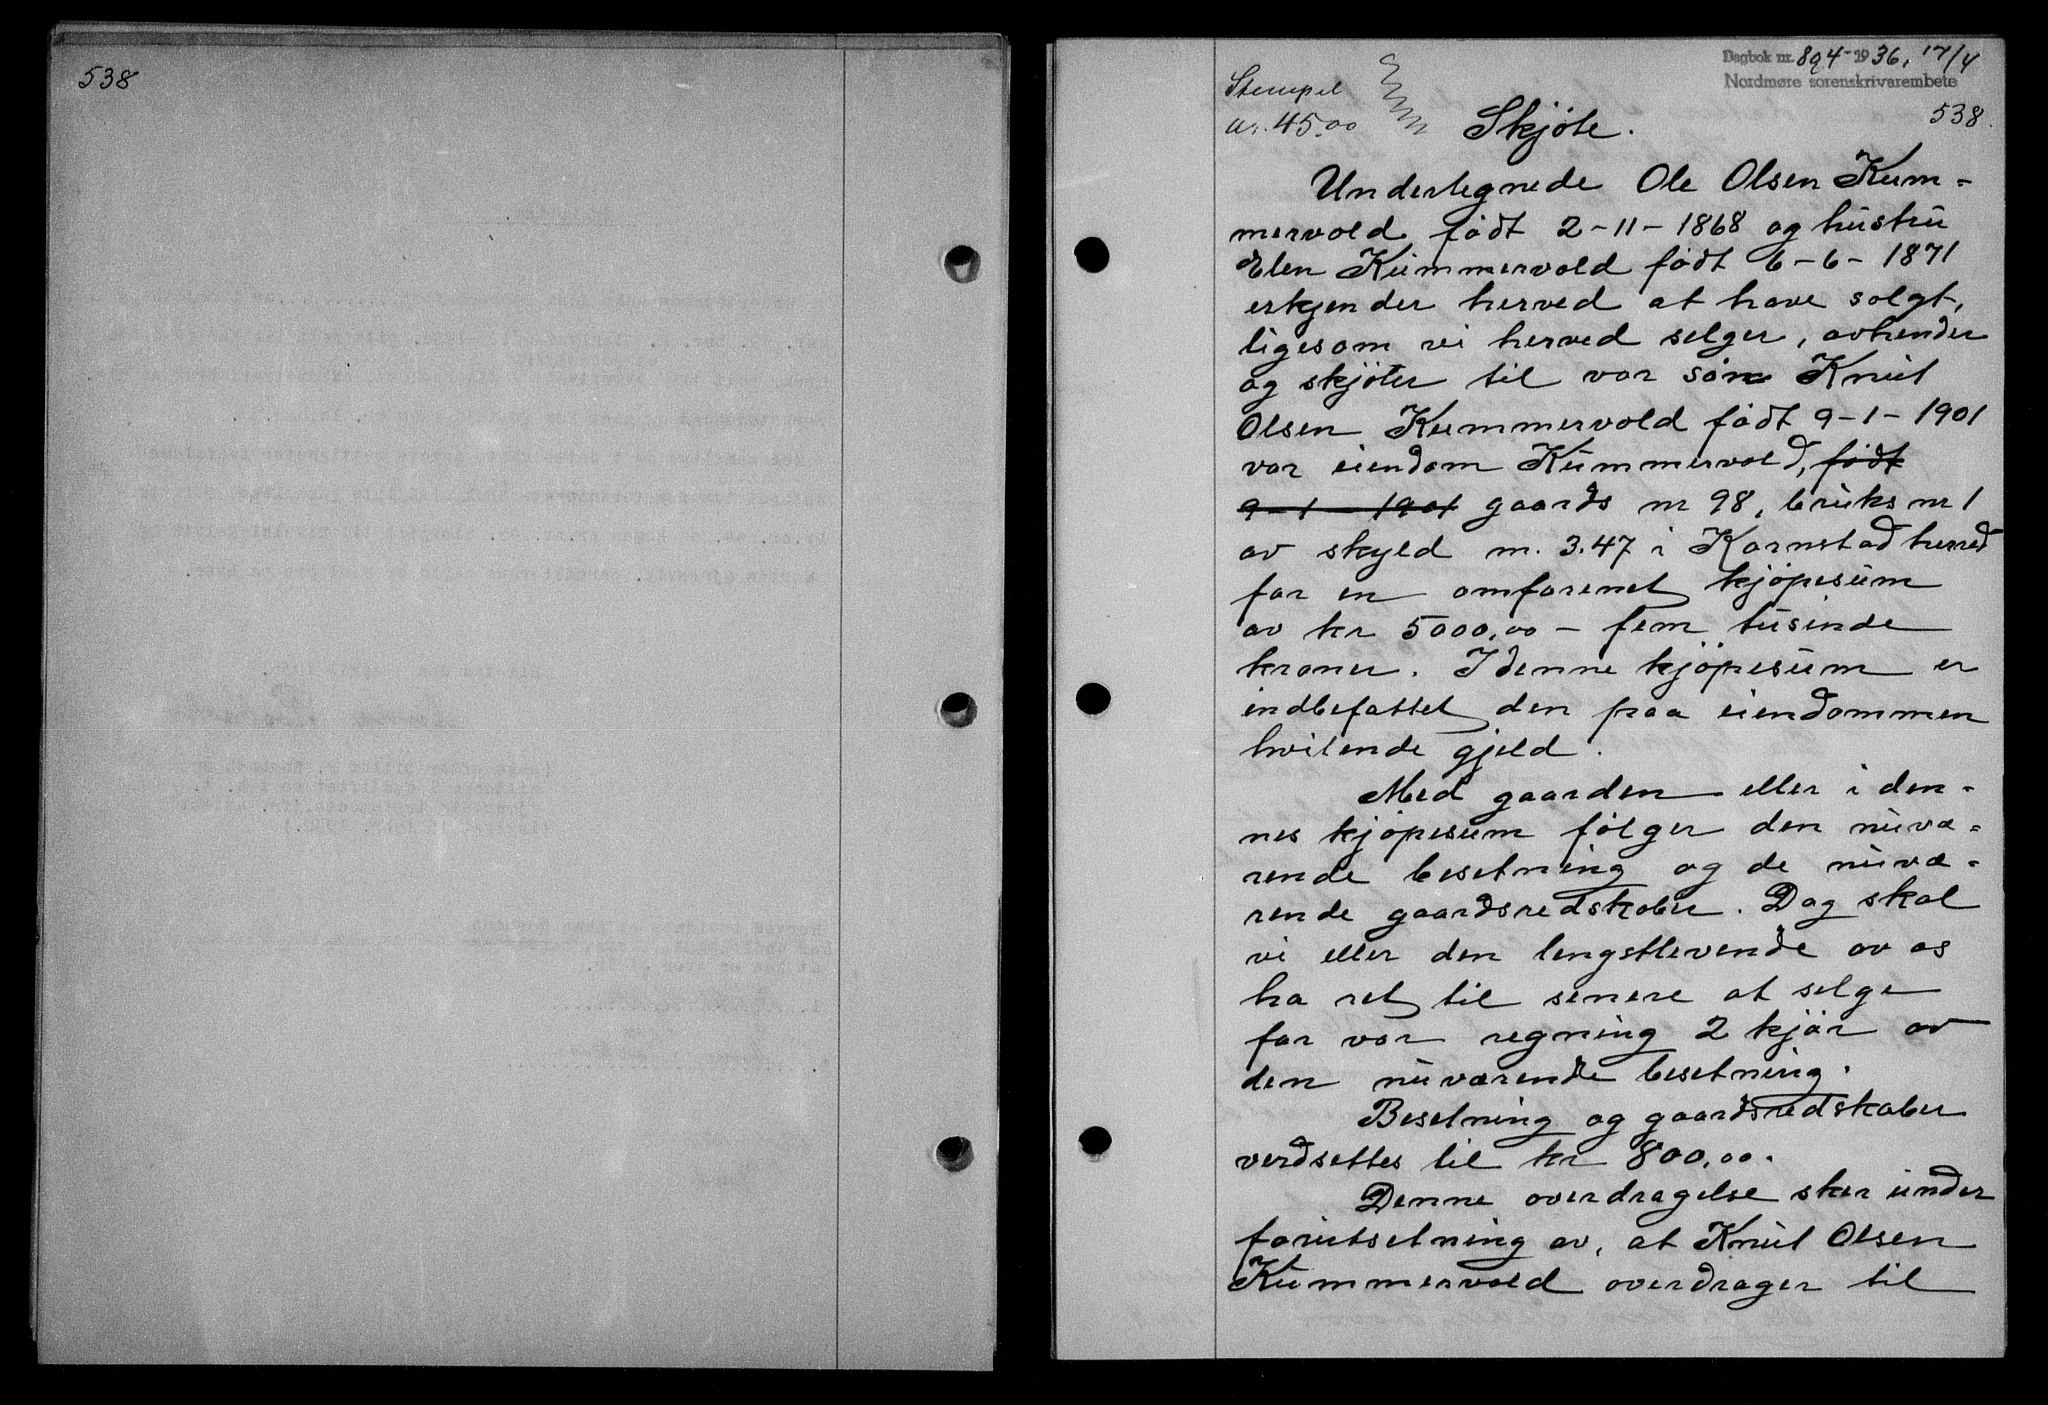 538
Dagbok nr. 894-1936, 17/4
Nordmøre sorenskrivarembete
538
Stempel
kr. 45.00
Skjøte.
Undertegnede Ole Olsen Kum-
mervold født 2-11-1868 og hustru
Elen Kummervold født 6-6-1871
erkjender herved at have solgt,
ligesom vi herved selger, avhender
og skjøter til vor søn Knut
Olsen Kummervold født 9-1-1901
vor eiendom Kummervold, født
9-1-1901 gaards nr 98, bruks nr 1
av skyld m. 3.47 i Kornstad herred
for en omforenet kjøpesum
av kr 5000,00 - fem tusinde
kroner. I denne kjøpesum er
indbefattet den paa eiendommen
hvilende gjeld.
Med gaarden eller i den-
nes kjøpesum følger den nuvæ-
rende besetning og de nuvæ-
rende gaardsredskaber. Dog skal
vi eller den lengstlevende av os
ha ret til senere at selge
for vor regning 2 kjør av
den nuværende besetning.
Besetning og gaardsredskaber
verdsettes til kr 800,00.
Denne overdragelse sker under
forutsetning av, at Knut Olsen
Kummervold overdrager til